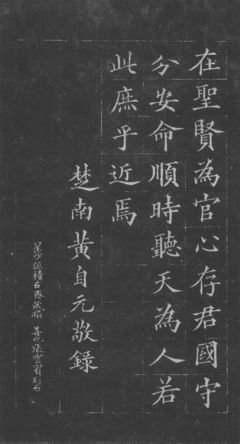 在聖賢為官心存君國守
分安命順時聽天為人若
此庶乎近焉
楚南黃自元敬錄